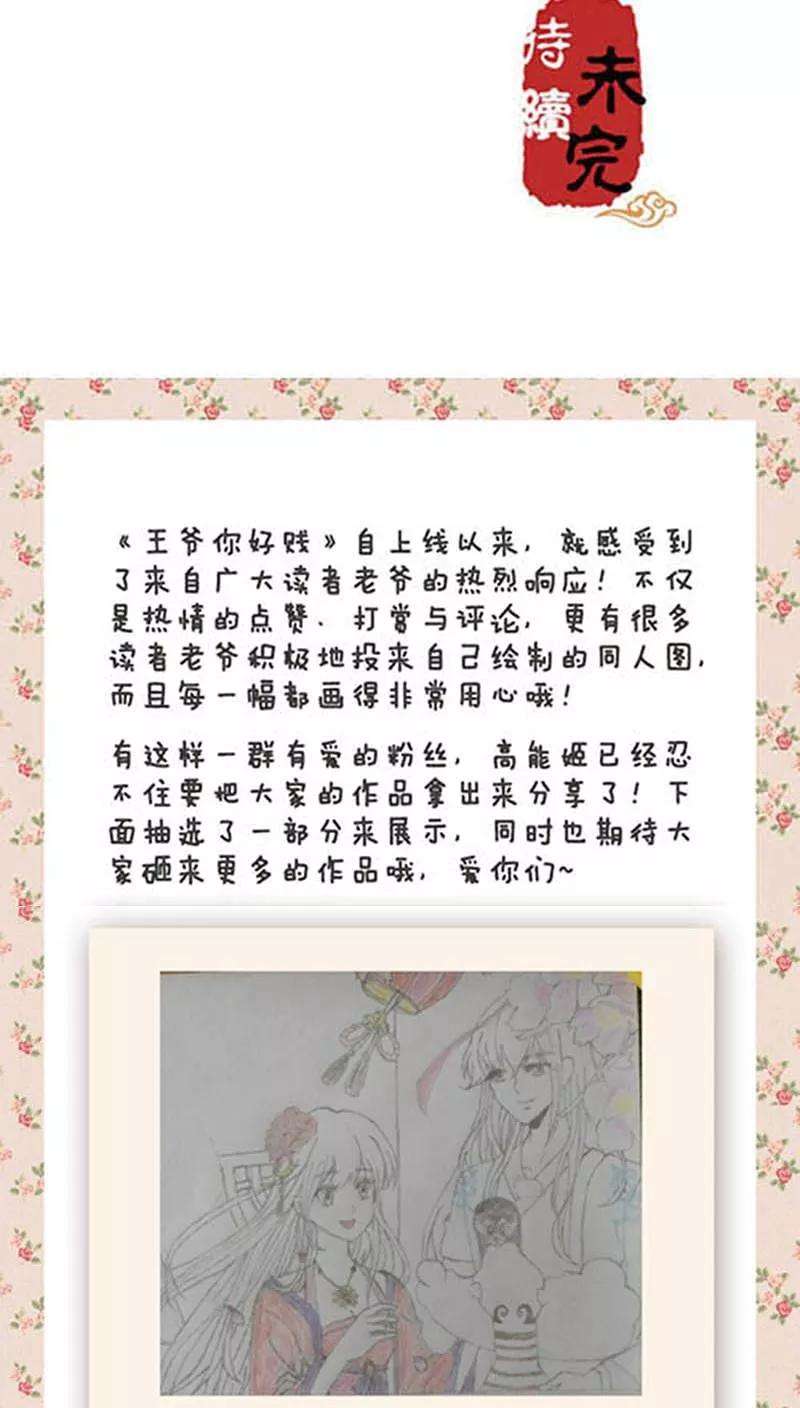 未完
待續
《王爷你好贱》自上线以来，就感受到
了来自广大读者老爷的热烈响应！不仅
是热情的点赞、打赏与评论，更有很多
读者老爷积极地投来自己绘制的同人图，
而且每一幅都画得非常用心哦！
有这样一群有爱的粉丝，高能姬已经忍
不住要把大家的作品拿出来分享了！下
面抽选了一部分来展示，同时也期待大
家砸来更多的作品哦，爱你们~